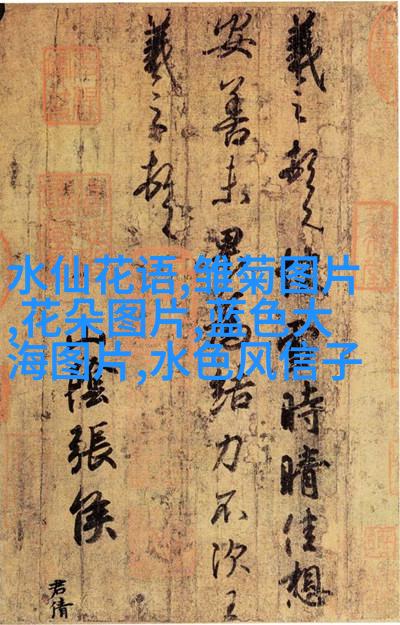 水仙花语,雏菊图片
,花朵图片,蓝色大
海图片,水色风信子
羲之頓首時晴佳想
安善未果為結力不次王
羲之頓首
山陰張侯
君倩